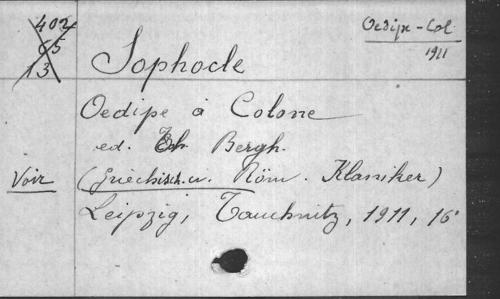 402
65
13
Oedipe - Col
1911
Sophocle
Oedipe à Colone
ed. Th Bergk.
Voir (Griechisch. u. Röm. Klassiker)
Leipzig, Tauchnitz, 1911, 16°